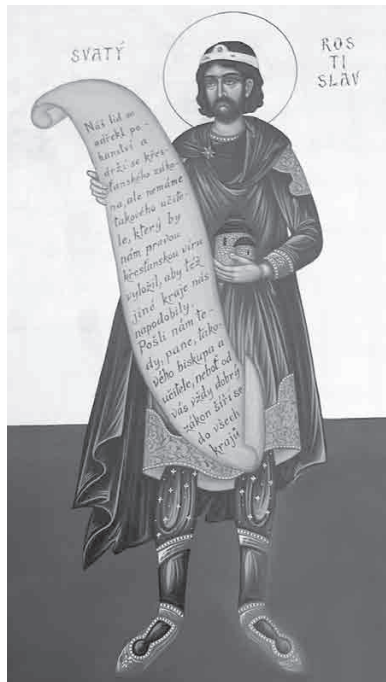 SVATÝ
ROS
TI
SLAV
Náš lid se
odřekl po-
hanství a
drží se křes-
ťanského záko-
na, ale nemáme
takového učite-
le, který by
nám pravou
křesťanskou víru
vyložil, aby též
jiné kraje nás
napodobily.
Pošli nám te-
dy, pane, tako-
vého biskupa a
učitele, neboť od
vás vždy dobrý
zákon šíří se
do všech
krajů